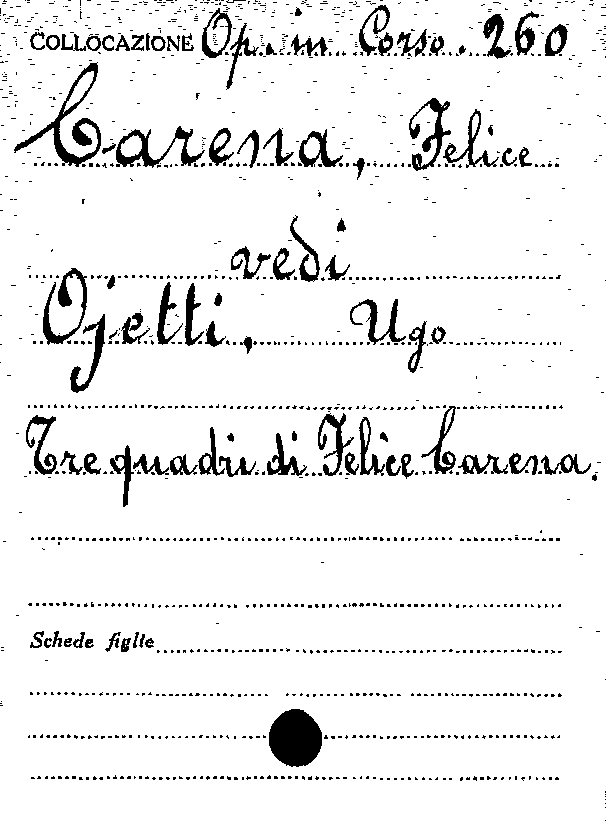 COLLOCAZIONE Op. in Corso. 260
Carena, Felice
vedi
Ojetti, Ugo
Tre quadri di Felice Carena.
Schede figlie